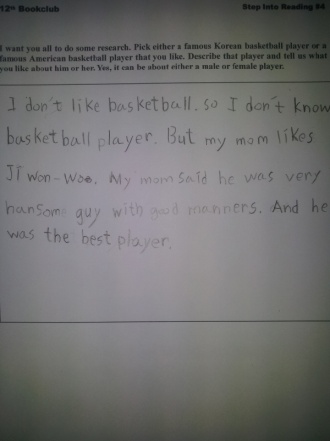 12th Bookclub Step Into Reading #4
I want you all to do some research. Pick either a famous Korean basketball player or a
famous American basketball player that you like. Describe that player and tell us what
you like about him or her. Yes, it can be about either a male or female player.
I don't like basketball. so I don't know
basketball player. But my mom likes
Ji won-woo. My mom said he was very
hansome guy with good manners. And he
was the best player.